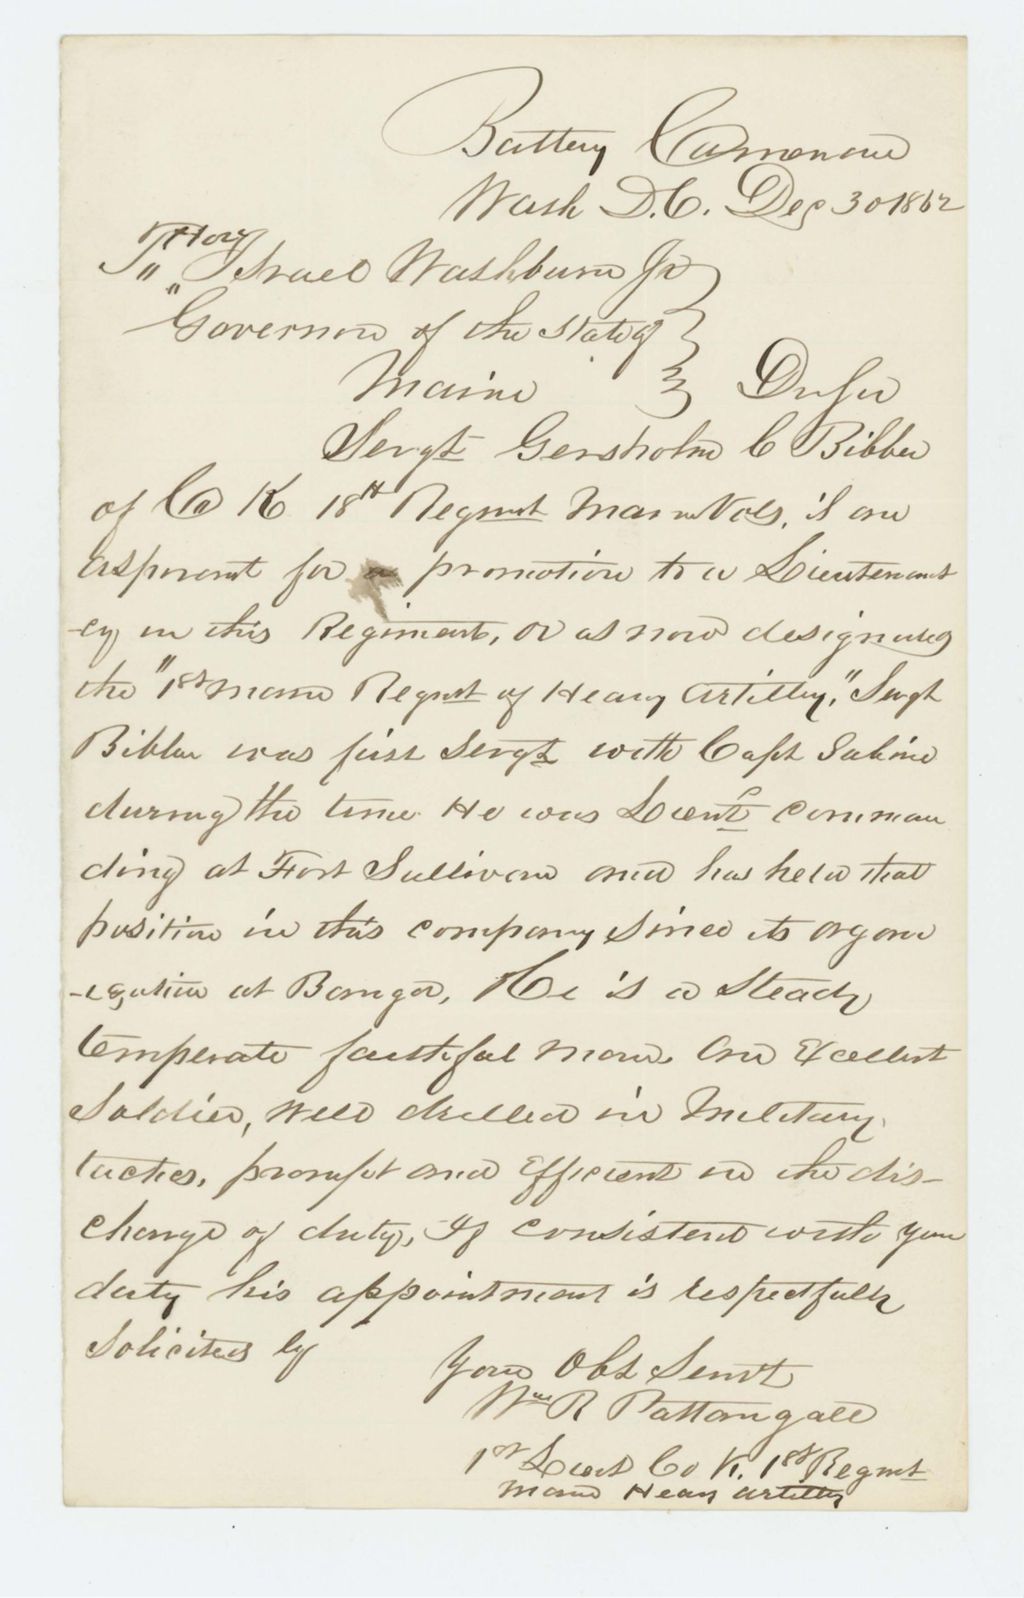 Battery Cameron
Wash D.C. Dec 30 1862
To Hon
" Israel Washburn Jr
" Governor of the State of
Maine Dr Sir
Sergt Gershom C Bibber
of Co K 18th Regmt Maine Vols, is an
aspirant for a promotion to a Lieutenant
-cy in this Regiment, or as now designated
the "1st Maine Regmt of Heavy Artillery," Sergt
Bibber was first Sergt with Capt Sabine
during the time He was Lieut Comman
ding at Fort Sullivan and has held that
position in this company since its organ
-ization at Bangor, He is a steady
temperate faithful man. An Excellent
Soldier, Well drilled in Military
tactics, prompt and Efficient in the dis-
charge of duty, If consistent with your
duty his appointment is respectfully
Solicited by
Your Obt Servt
Wm R Pattangall
1st Lieut Co K. 1st Regmt
Maine Heavy Artillery